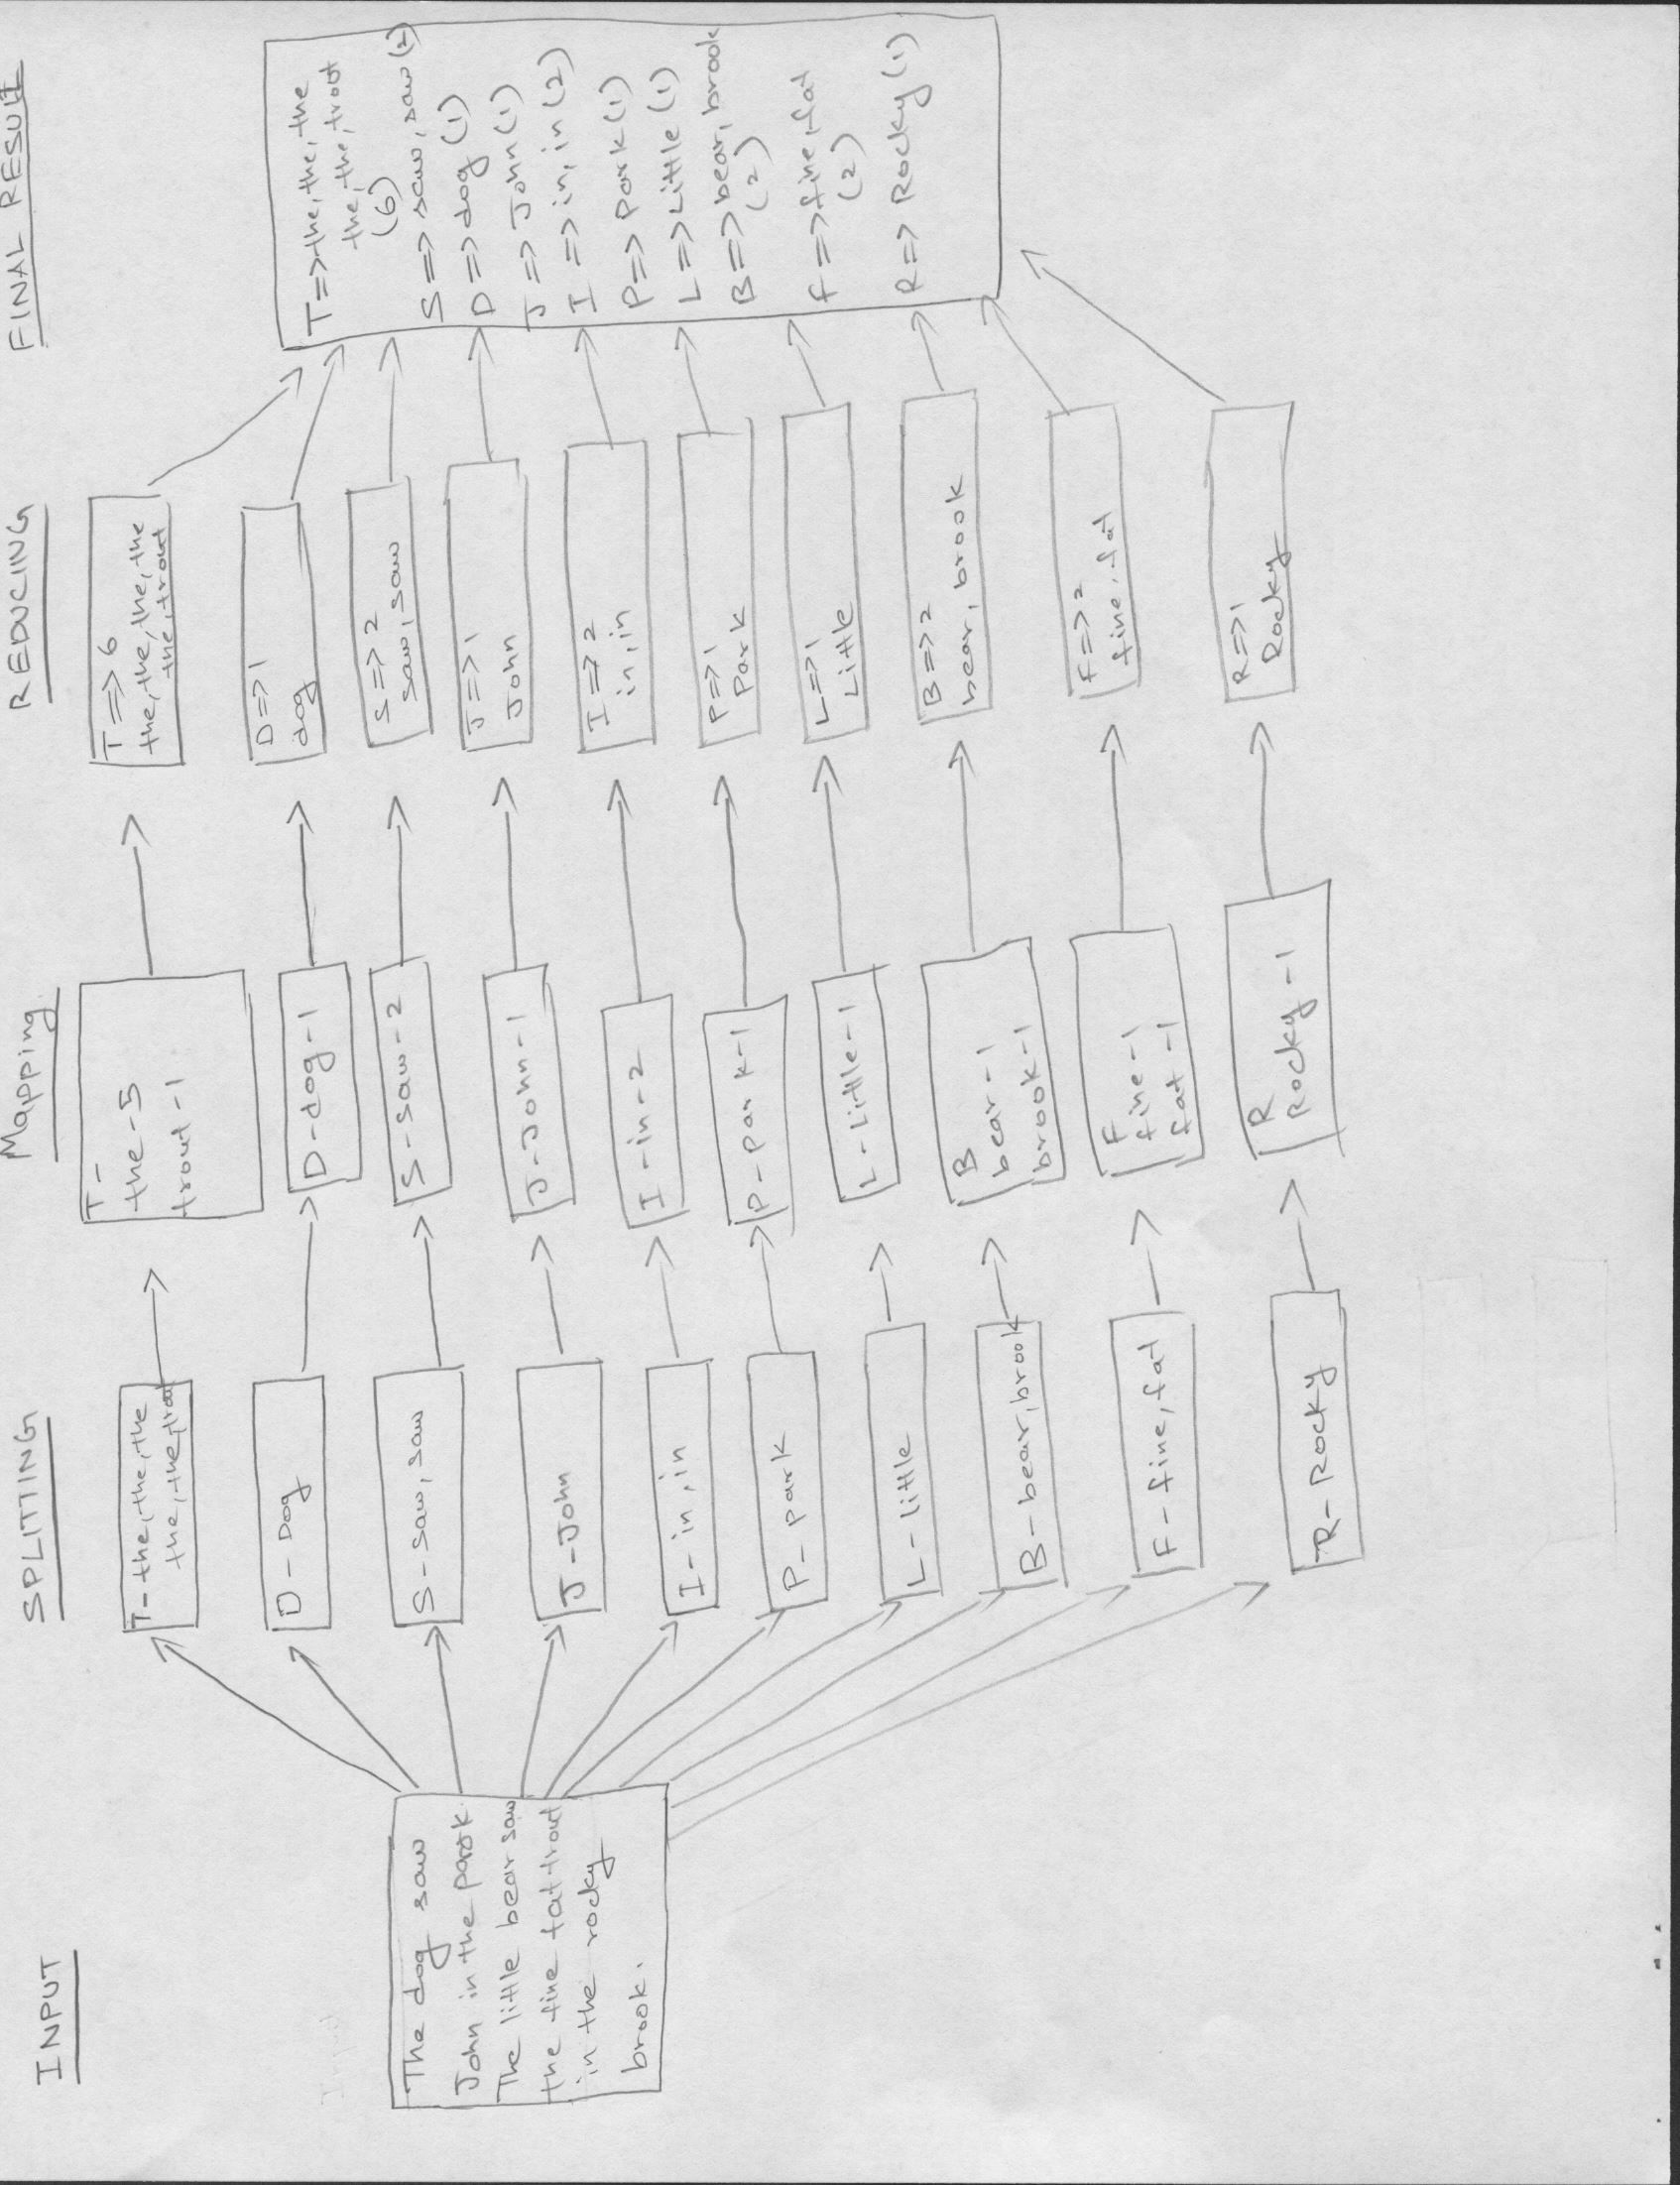 INPUT
SPLITTING
Mapping
REDUCING
FINAL RESULT
Input
The dog saw
John in the park.
The little bear saw
the fine fat trout
in the rocky
brook.
T- the, the, the
the, the, trout
D - Dog
S - saw, saw
J - John
I - in, in
P - park
L - little
B - bear, brook
F - fine, fat
R - Rocky
T -
the - 5
trout - 1
D - dog - 1
S - saw - 2
J - John - 1
I - in - 2
P - park - 1
L - Little - 1
B
bear - 1
brook - 1
F
fine - 1
fat - 1
R
Rocky - 1
T => 6
the, the, the, the
the, trout
D => 1
dog
S => 2
saw, saw
J => 1
John
I => 2
in, in
P => 1
Park
L => 1
Little
B => 2
bear, brook
F => 2
fine, fat
R => 1
Rocky
T => the, the, the
the, the, trout
(6)
S => saw, saw (2)
D => dog (1)
J => John (1)
I => in, in (2)
P => Park (1)
L => Little (1)
B => bear, brook
(2)
F => fine, fat
(2)
R => Rocky (1)